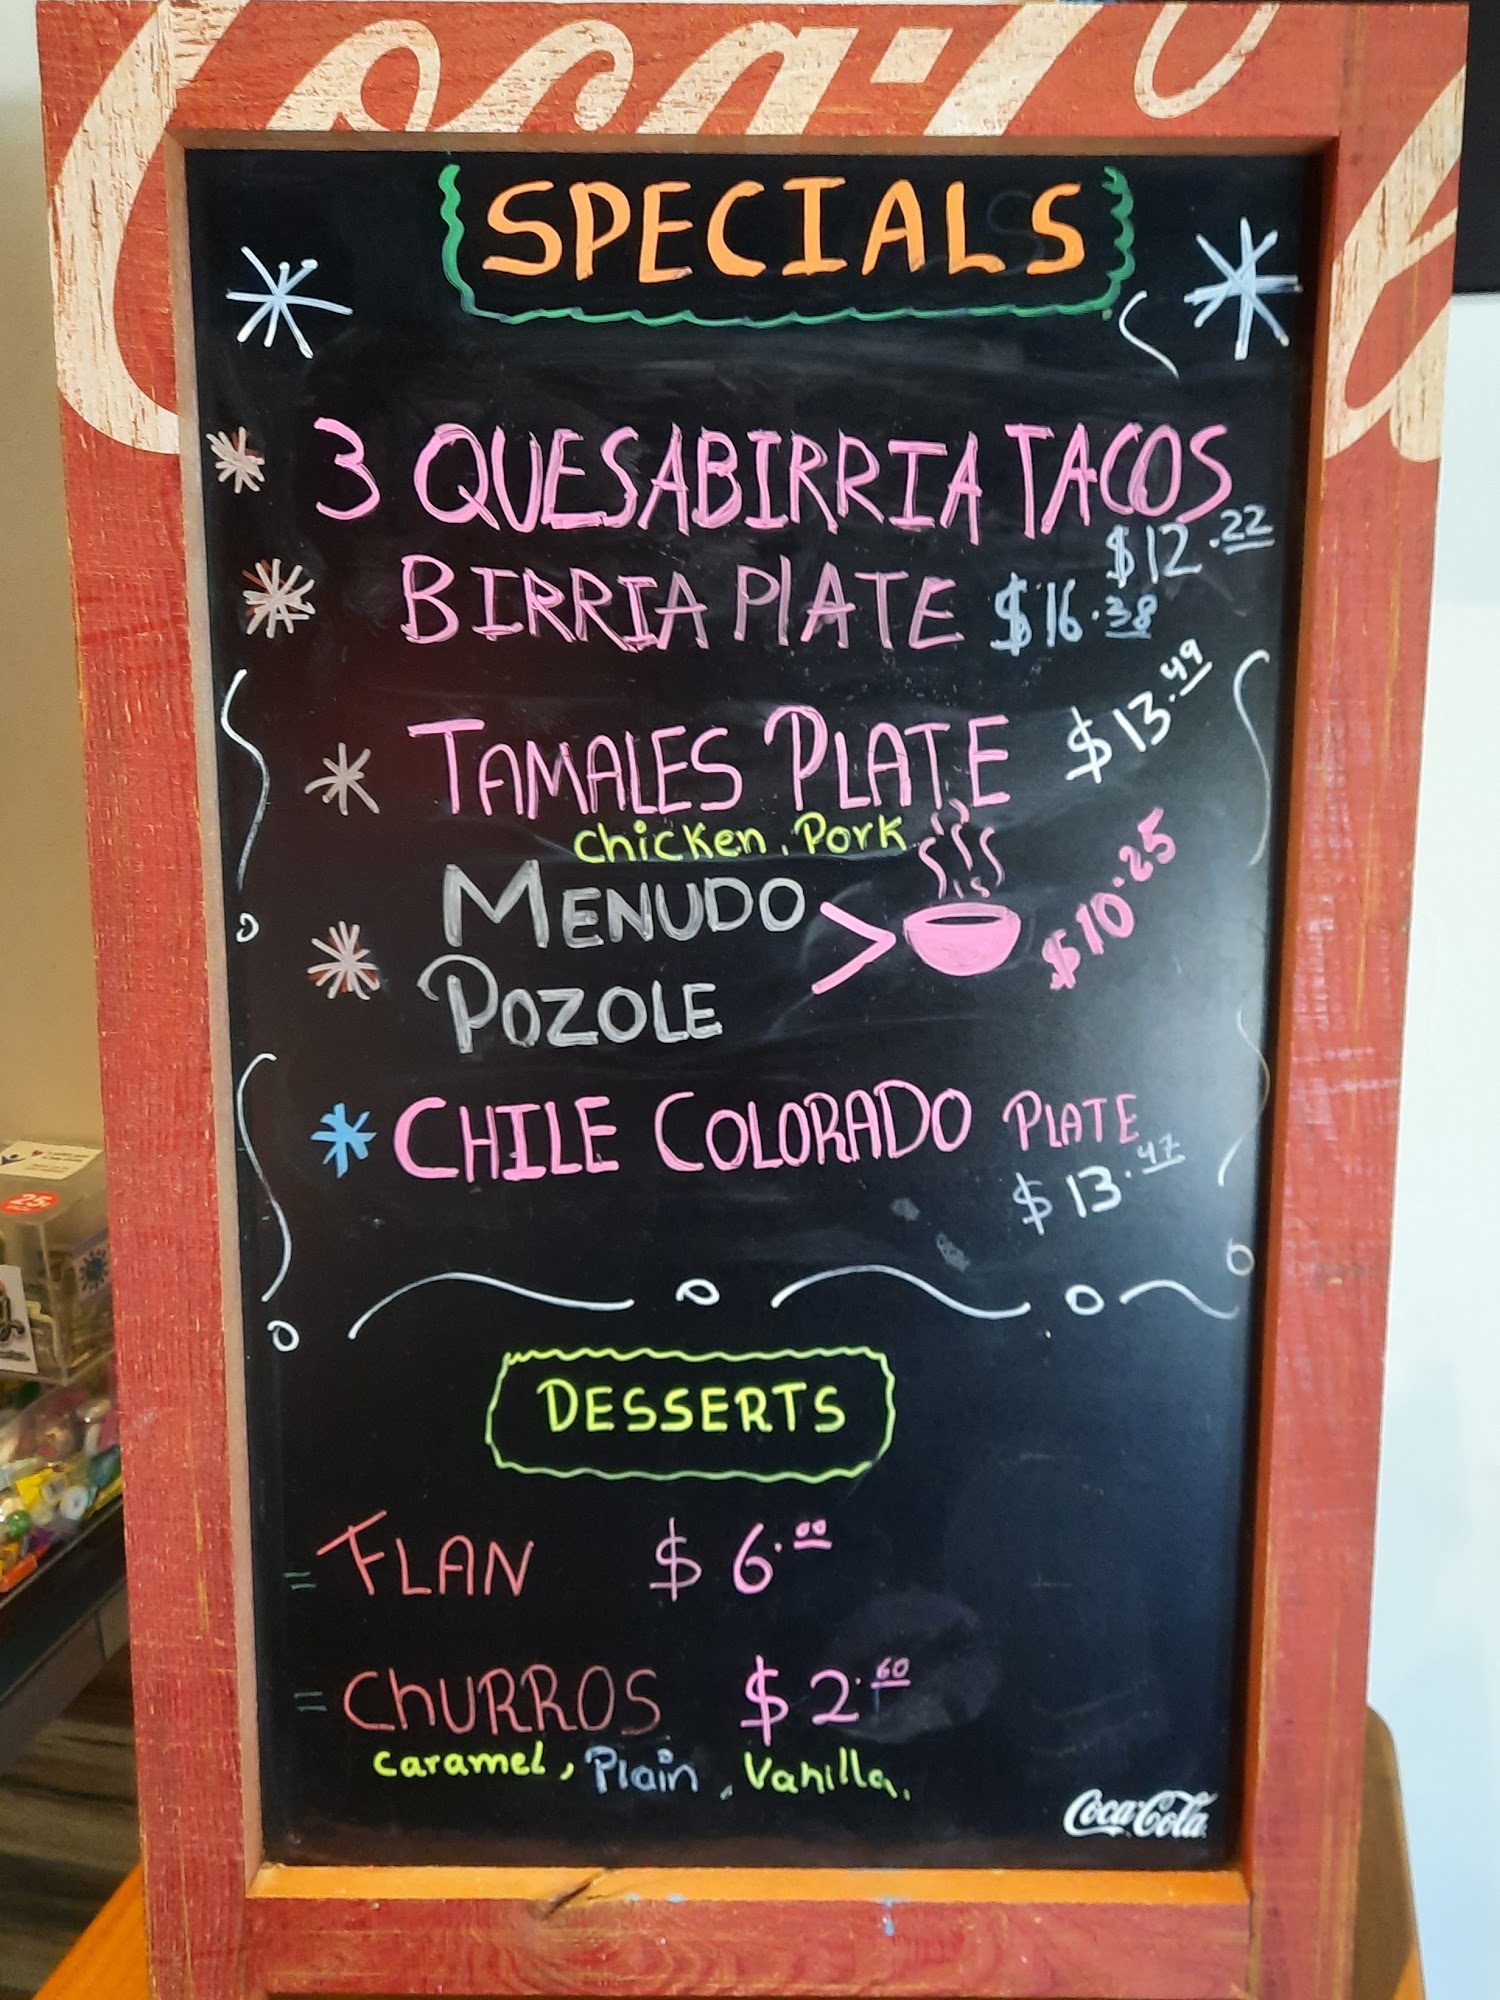 Coca-Co
SPECIALS
3 QUESABIRRIA TACOS
$12.22
BIRRIA PLATE $16.38
TAMALES PLATE $13.49
chicken, Pork
MENUDO
POZOLE
$10.25
CHILE COLORADO PLATE
$13.47
DESSERTS
= FLAN $6.00
= ChURROS $2.60
caramel, Plain, Vanilla.
Coca-Cola
25¢